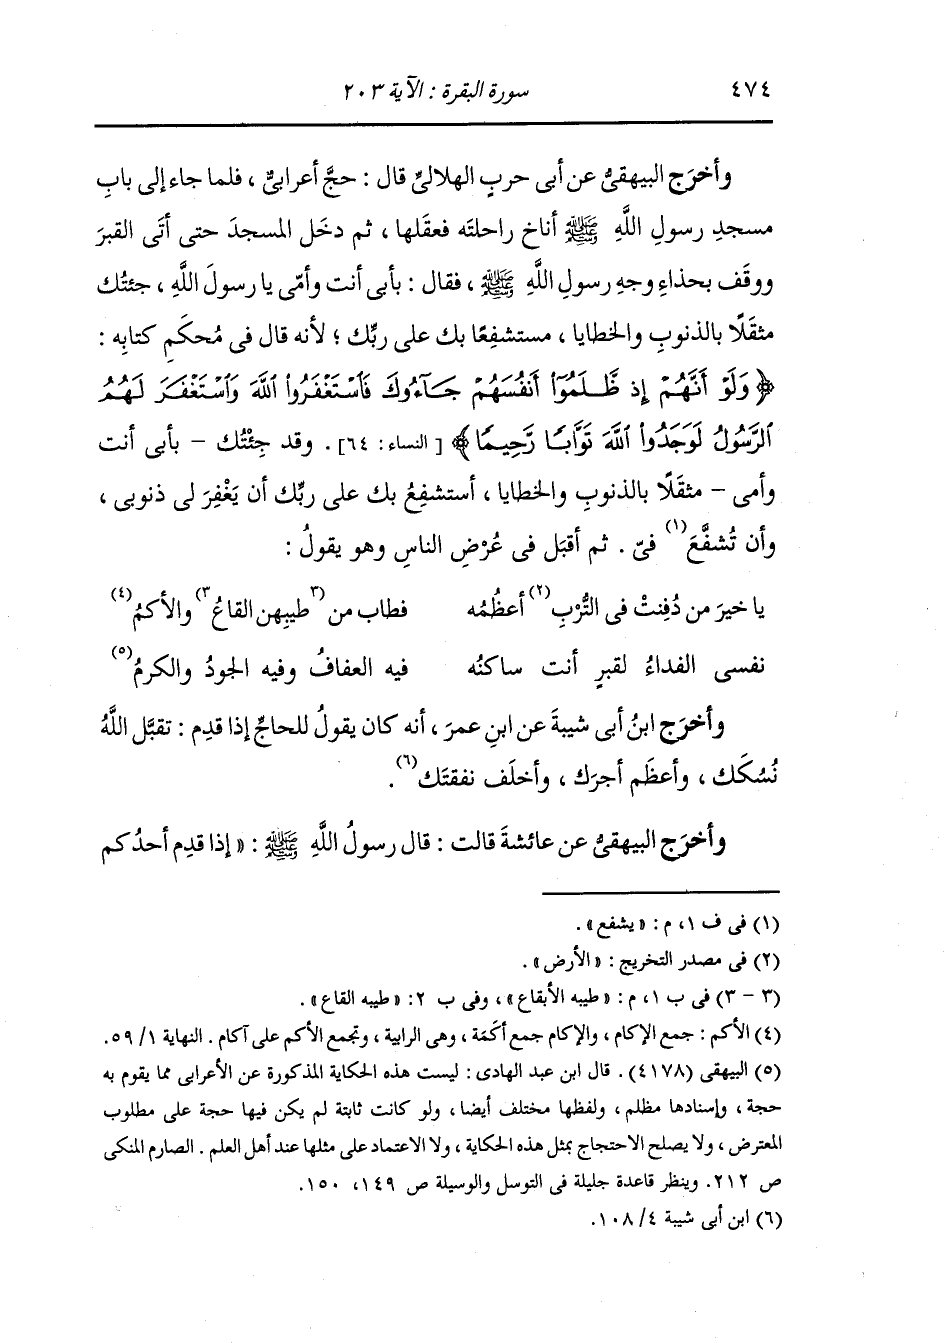 سورة البقرة : الآية ٢٠٣ ٤٧٤
وأخرَج البيهقىُّ عن أبى حربٍ الهلالىِّ قال : حجَّ أعرابىٌّ ، فلما جاء إلى بابِ
مسجدِ رسولِ اللَّهِ ﷺ أناخ راحلتَه فعقَلها ، ثم دخَل المسجدَ حتى أتَى القبرَ
ووقَف بحذاءِ وجهِ رسولِ اللَّهِ ﷺ ، فقال : بأبى أنت وأمِّى يا رسولَ اللَّهِ ، جئتُك
مثقَلًا بالذنوبِ والخطايا ، مستشفِعًا بك على ربِّك ؛ لأنه قال فى مُحكَمِ كتابِه :
﴿ وَلَوْ أَنَّهُمْ إِذ ظَّلَمُوٓا۟ أَنفُسَهُمْ جَآءُوكَ فَٱسْتَغْفَرُوا۟ ٱللَّهَ وَٱسْتَغْفَرَ لَهُمُ
ٱلرَّسُولُ لَوَجَدُوا۟ ٱللَّهَ تَوَّابًا رَّحِيمًا ﴾ [ النساء : ٦٤] . وقد جِئْتُك – بأبى أنت
وأمى – مثقَلًا بالذنوبِ والخطايا ، أستشفِعُ بك على ربِّك أن يَغْفِرَ لى ذنوبى ،
وأن تُشفَّعَ(١) فىّ . ثم أقبَل فى عُرْضِ الناسِ وهو يقولُ :
يا خيرَ من دُفِنتْ فى التُّرْبِ(٢) أعظُمُه فطاب من (٣طيبِهن القاعُ٣) والأكمُ(٤)
نفسى الفداءُ لقبرٍ أنت ساكنُه فيه العفافُ وفيه الجودُ والكرمُ(٥)
وأخرَج ابنُ أبى شيبةَ عن ابنِ عمرَ ، أنه كان يقولُ للحاجِّ إذا قدِم : تقبَّل اللَّهُ
نُسُكَك ، وأعظَم أجرَك ، وأخلَف نفقتَك(٦) .
وأخرَج البيهقىُّ عن عائشةَ قالت : قال رسولُ اللَّهِ ﷺ : « إذا قدِم أحدُكم
(١) فى ف ١، م : « يشفع » .
(٢) فى مصدر التخريج : « الأرض » .
(٣ – ٣) فى ب ١، م : « طيبه الأبقاع » ، وفى ب ٢: « طيبه القاع » .
(٤) الأكم : جمع الإكام ، والإكام جمع أكَمَة ، وهى الرابية ، وتجمع الأكم على آكام . النهاية ١/ ٥٩.
(٥) البيهقى (٤١٧٨) . قال ابن عبد الهادى : ليست هذه الحكاية المذكورة عن الأعرابى مما يقوم به
حجة ، وإسنادها مظلم ، ولفظها مختلف أيضا ، ولو كانت ثابتة لم يكن فيها حجة على مطلوب
المعترض ، ولا يصلح الاحتجاج بمثل هذه الحكاية ، ولا الاعتماد على مثلها عند أهل العلم . الصارم المنكى
ص ٢١٢. وينظر قاعدة جليلة فى التوسل والوسيلة ص ١٤٩، ١٥٠.
(٦) ابن أبى شيبة ٤/ ١٠٨.